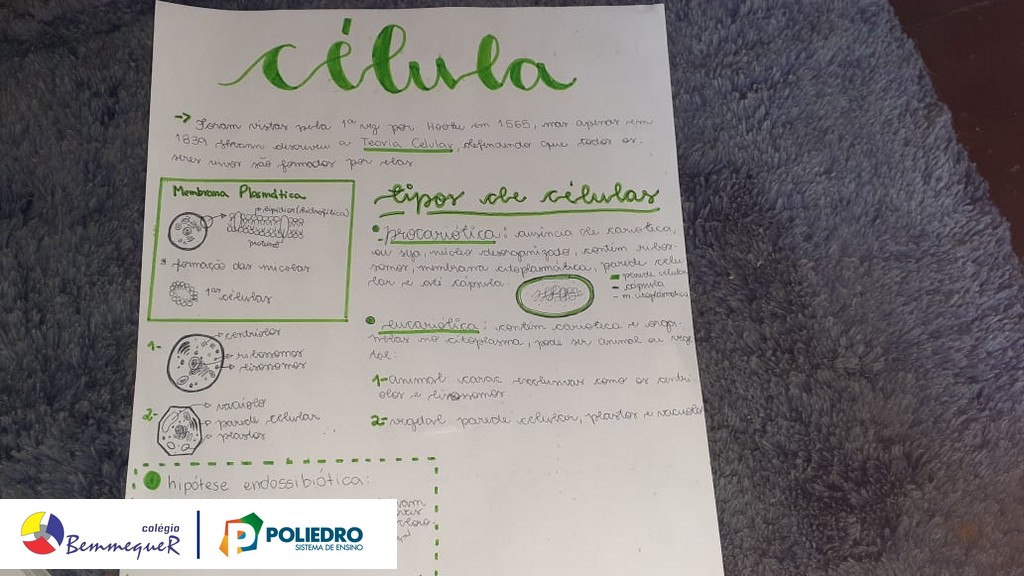 célula
-> Foram vistas pela 1ª vez por Hooke em 1565, mas apenas em
1839 foram descreveu a Teoria Celular, defendendo que todos os
seres vivos são formados por elas
Membrana Plasmática
proteína
* formação das micelas
1ªs células
tipos de células
• procariótica: ausência de carioteca,
ou seja, núcleo desorganizado, contém ribos-
somos, membrana citoplasmática, parede celu-
lar e até cápsula.
parede celular
cápsula
m. citoplasmática
• eucariótica: contém carioteca e orga-
nelas no citoplasma, pode ser animal ou vege
tal:
1- animal: carac. exclusivas como os centrí-
olos e lisossomos
2- vegetal: parede celular, plastos e vacúolo
1-
centríolos
ribossomos
lisossomos
2-
vacúolo
parede celular
plastos
hipótese endossibiótica:
colégio
BemmequeR
POLIEDRO
SISTEMA DE ENSINO